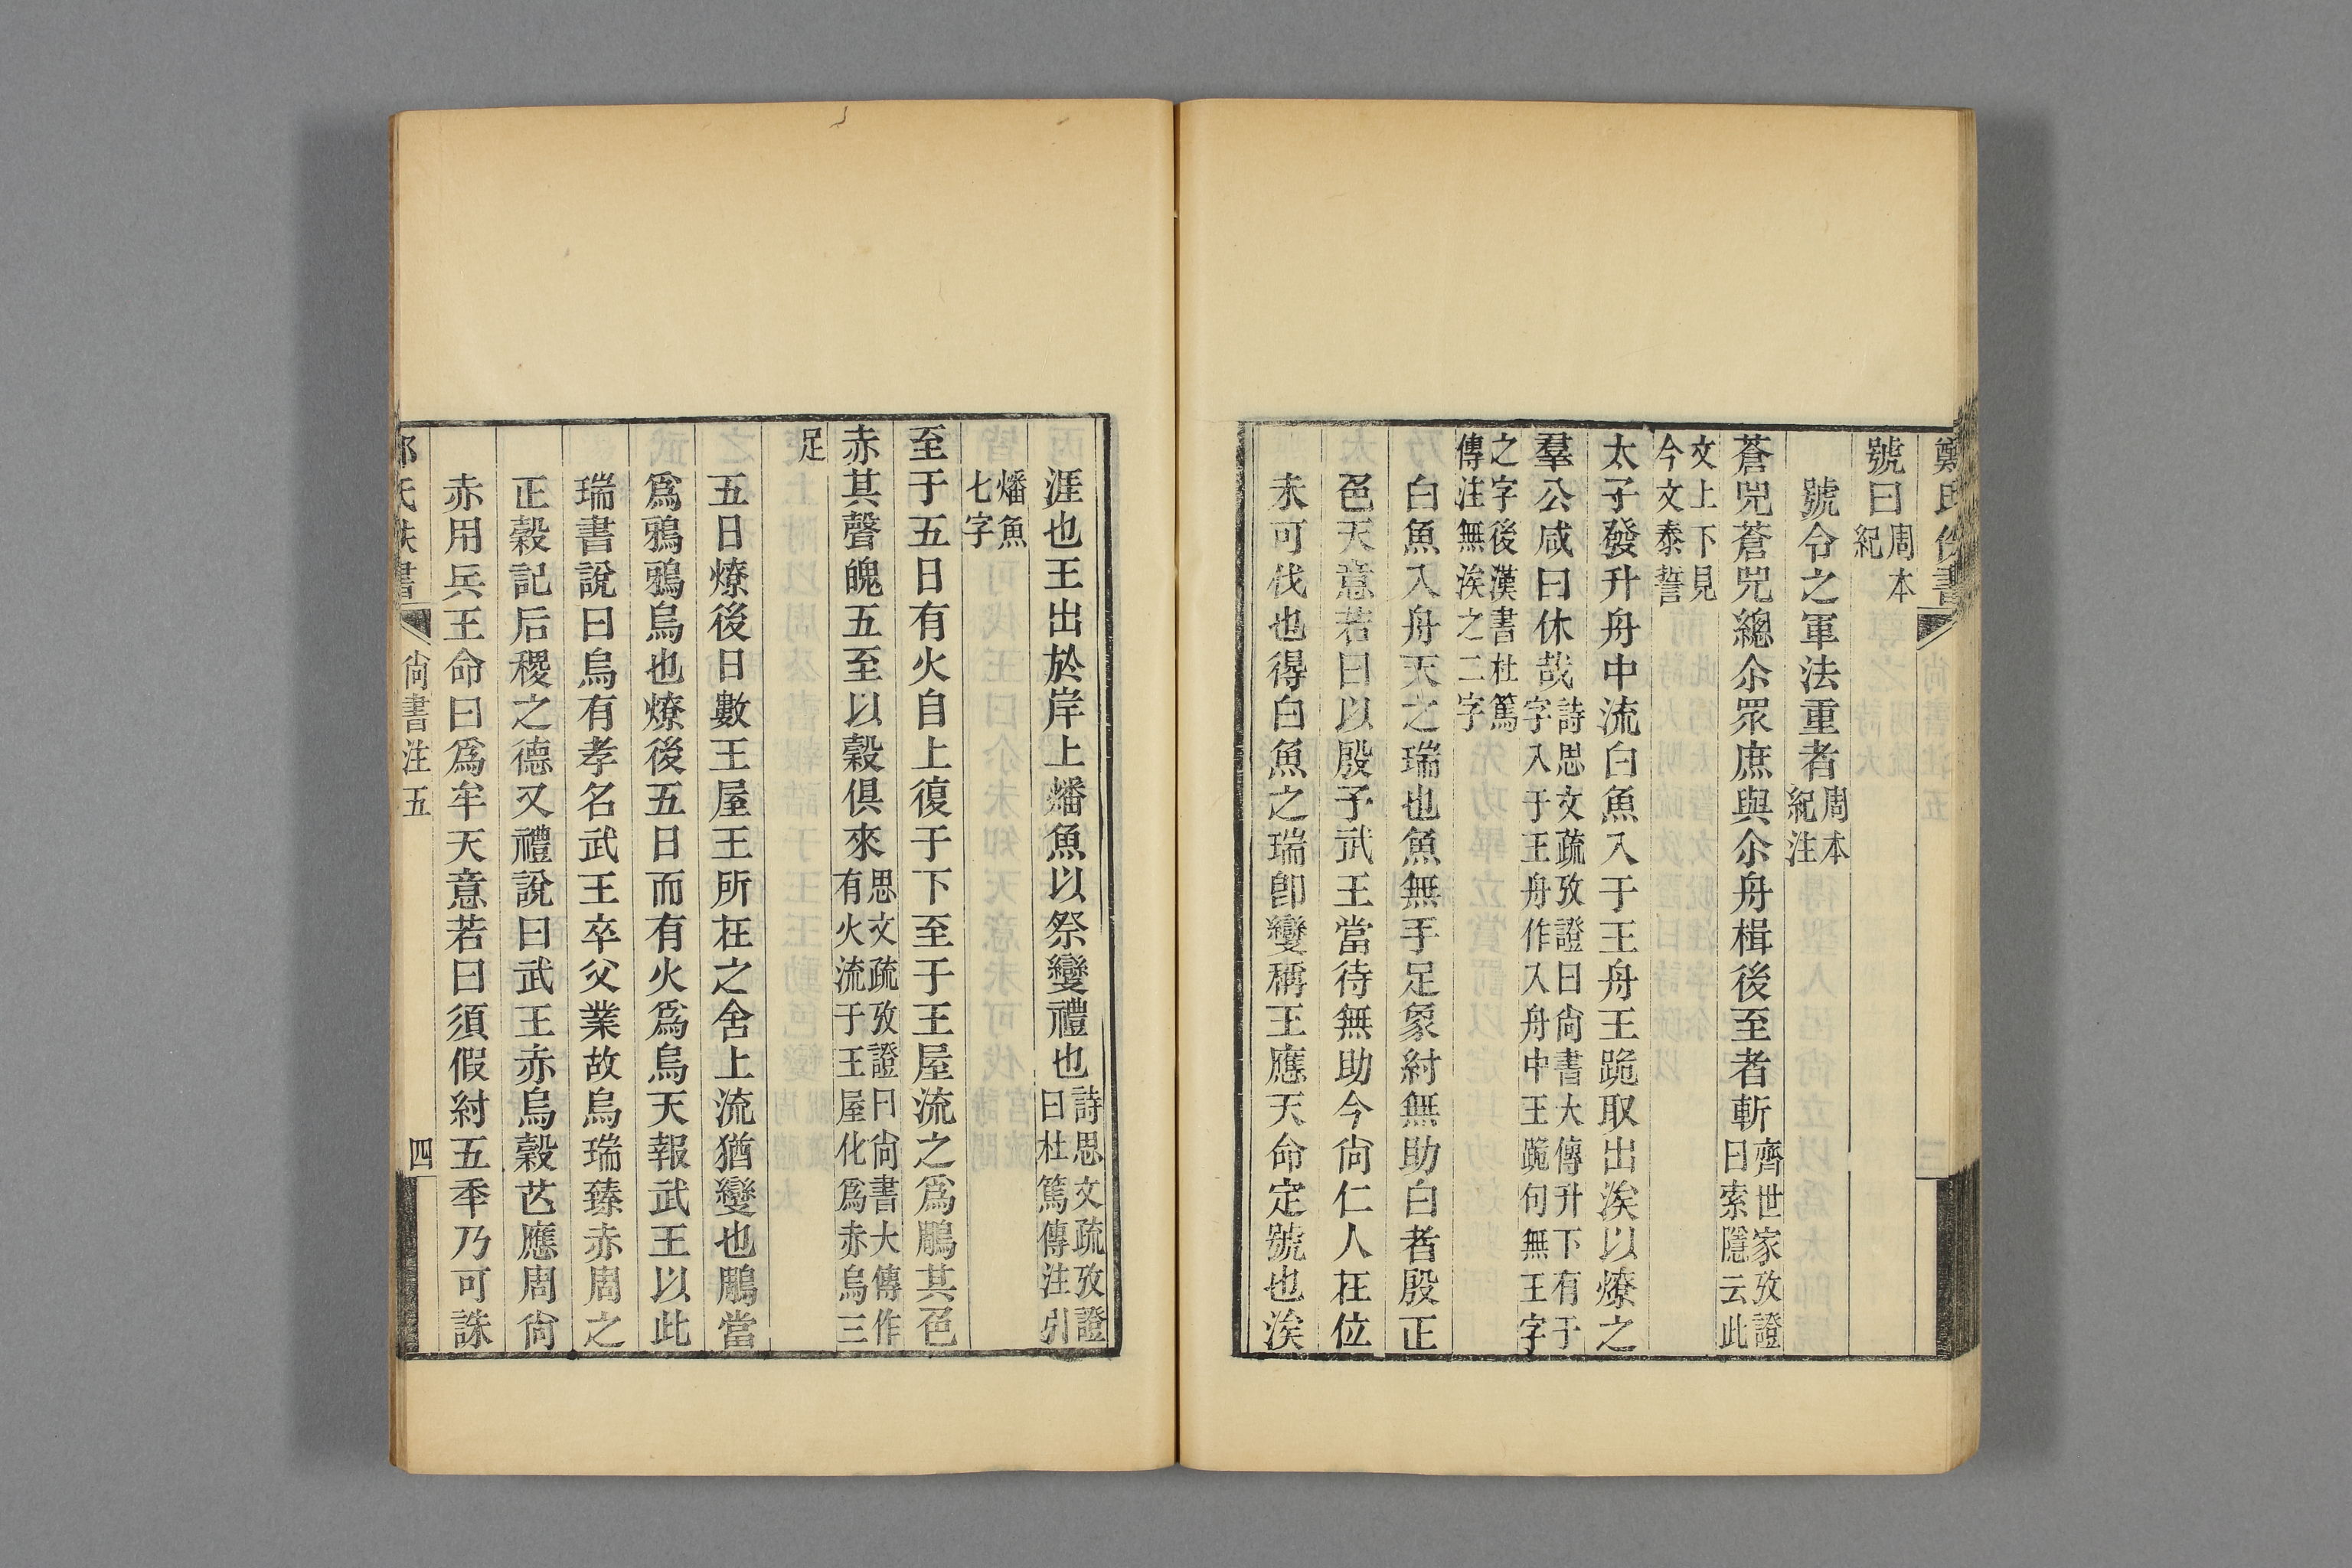 鄭氏佚書
號曰周本
紀
號令之軍法重者周本
紀注
蒼兕蒼兕總尒眾庶與尒舟楫後至者斬齊世家攷證
曰索隱云此
文上下見
今文泰誓
太子發升舟中流白魚入于王舟王跪取出涘以燎之
羣公咸曰休哉詩思文疏攷證曰尙書大傳升下有于
字入于王舟作入舟中王跪句無王字
之字後漢書杜篤
傳注無涘之二字
白魚入舟天之瑞也魚無手足象紂無助白者殷正
色天意若曰以殷予武王當待無助今尙仁人在位
未可伐也得白魚之瑞卽變稱王應天命定號也涘
涯也王出於岸上燔魚以祭變禮也詩思文疏攷證
曰杜篤傳注引
燔魚
七字
至于五日有火自上復于下至于王屋流之爲鵰其色
赤其聲魄五至以穀俱來思文疏攷證曰尙書大傳作
有火流于王屋化爲赤烏三
足
五日燎後日數王屋王所在之舍上流猶變也鵰當
爲鴉鴉烏也燎後五日而有火爲烏天報武王以此
瑞書說曰烏有孝名武王卒父業故烏瑞臻赤周之
正穀記后稷之德又禮說曰武王赤烏穀芑應周尙
赤用兵王命曰爲牟天意若曰須假紂五秊乃可誅
氏佚書
尙書注五
四